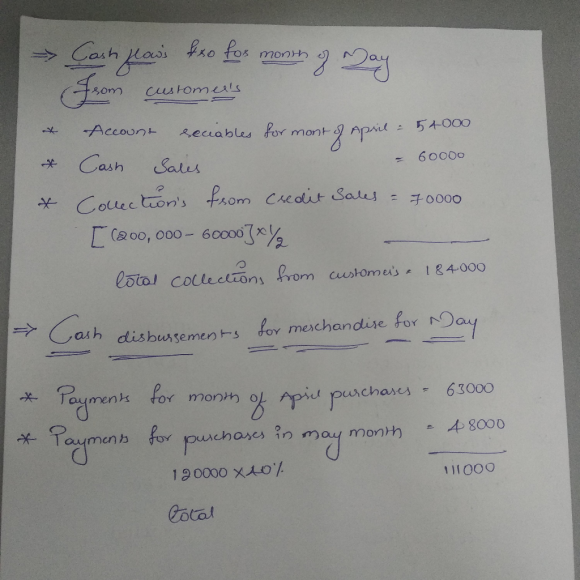 ⇒ Cash flows fro for month of May
From customer's
* Account reciables for mont of April = 54000
* Cash Sales = 60000
* Collection's from Credit Sales = 70000
[(200,000 - 60000] x 1/2
total collections from customers = 184000
⇒ Cash disbursements for merchandise for May
* Payments for month of April purchases = 63000
* Payments for purchases in may month = 48000
120000 x 40% 111000
total